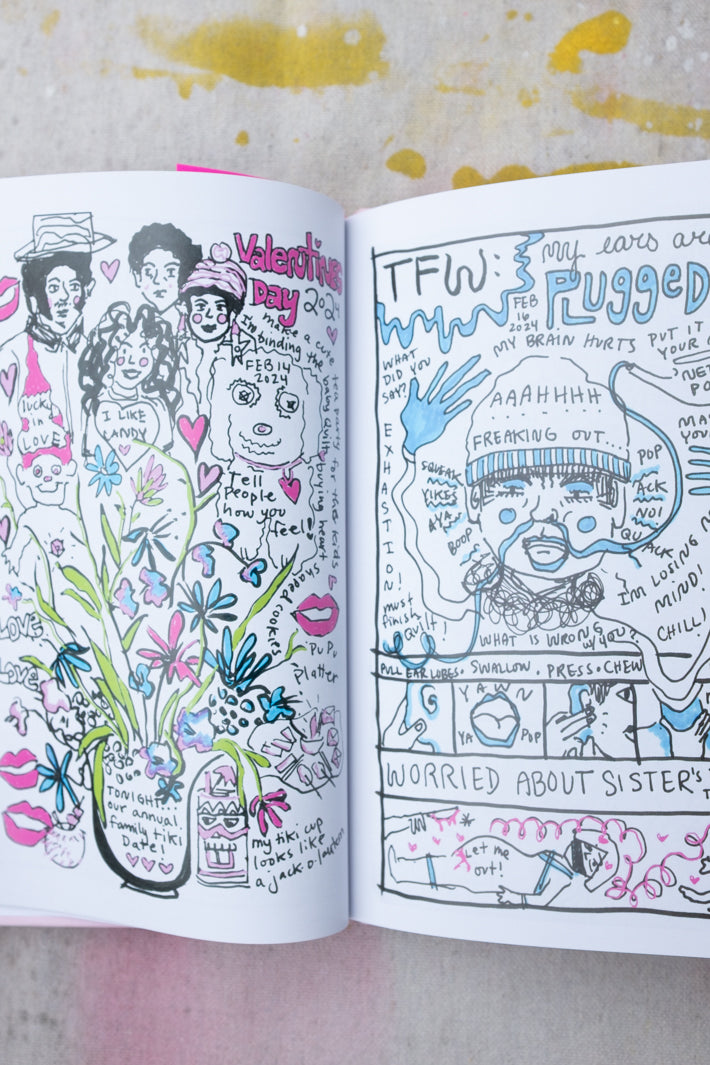 Valentines
Day 2024
make a cute tea party for the kids
I'm binding the baby quilt
buying heart shaped cookies
FEB 14
2024
lucky
in
LOVE
I LIKE
ANDY
Tell
People
how you
feel!
Pu Pu
Platter
LOVE
Love
TONIGHT!
our annual
family tiki
Date!
my tiki cup
looks like
a jack-o-lantern
TFW:
my ears are
PLUGGED
FEB
16
2024
MY BRAIN HURTS
PUT IT
YOUR
WHAT
DID YOU
SAY?
AAAHHHH
FREAKING OUT...
EXHASTION!
SQUEAK
YIKES
AYA
BOOP
POP
ACK
NO!
QU
ACK
I'M LOSING
MIND!
CHILL!
must
finish
Quilt!
WHAT IS WRONG
W/YOU?
PULL EAR LOBES • SWALLOW • PRESS • CHEW
YAWN
YA
POP
WORRIED ABOUT SISTER'S
Let me
out!